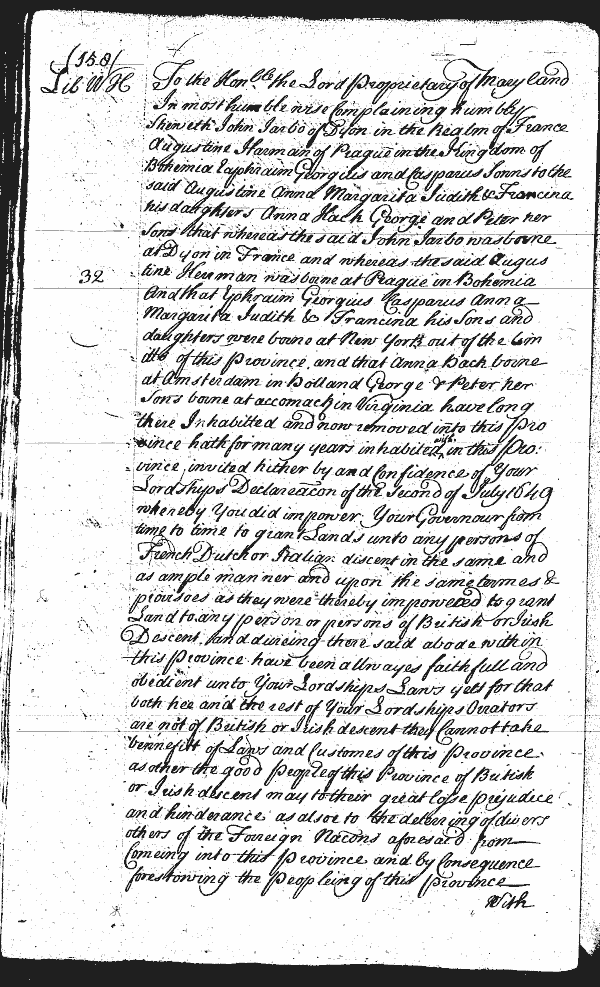 (158)
Lib W H
To the Hon:ble the Lord Proprietary of Mary land
In most humble wise Complaining humbly
Sheweth John Jarbo of Dyon in the Realm of France
Augustine Harman of Prague in the Kingdom of
Bohemia Ephraim Georgius and Casparus Sonns to the
said Augustine Anna Margarita Judith & Francina
his daughters Anna Hack George and Peter her
Sons that whereas the said John Jarbo was borne
at Dyon in France and whereas the said Augus
tine Herman was borne at Prague in Bohemia
32
And that Ephraim Georgius Casparus Anna
Margarita Judith & Francina his Sons and
daughters were borne at New York out of the Lim
itts of this Province, and that Anna Hack borne
at Amsterdam in Holland George & Peter her
Sons borne at accomack in Virginia have long
there Inhabitted and now removed into this Pro
vince hath for many years inhabited in this Pro:
vince, invited hither by and Confidence of Your
Lordships Declareacon of the Second of July 1649
whereby You did impower Your Governour from
time to time to grant Lands unto any persons of
French Dutch or Italian discent in the same and
as ample manner and upon the same termes &
provisoes as they were thereby impowered to grant
Land to any person or persons of British or Irish
Descent, And dureing there said abode within
this Province have been allwayes faithfull and
obedient unto Your Lordships Laws yett for that
both hee and the rest of Your Lordships Orators
are not of British or Irish descent they Cannot take
bennefitt of Laws and Customes of this Province
as other the good People of this Province of British
or Irish descent may to their great losse prejudice
and hinderance as alsoe to the deterring of divers
others of the Forreign Nacons aforesaid from
Comeing into this Province and by Consequence
foreslowing the Peopleing of this Province
With